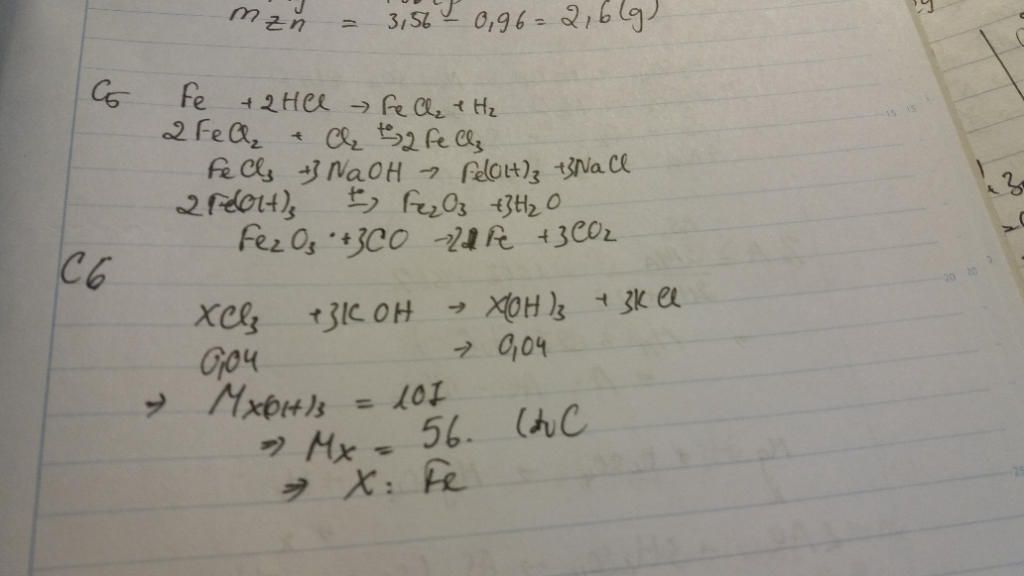 mZn = 3,56 - 0,96 = 2,6(g)
C5 Fe + 2HCl → FeCl₂ + H₂
2FeCl₂ + Cl₂ t°→ 2FeCl₃
FeCl₃ + 3NaOH → Fe(OH)₃ + 3NaCl
2Fe(OH)₃ t°→ Fe₂O₃ + 3H₂O
Fe₂O₃ + 3CO → 2Fe + 3CO₂
C6
XCl₃ + 3KOH → X(OH)₃ + 3KCl
0,04 → 0,04
→ MX(OH)₃ = 107
⇒ MX = 56.
⇒ X : Fe